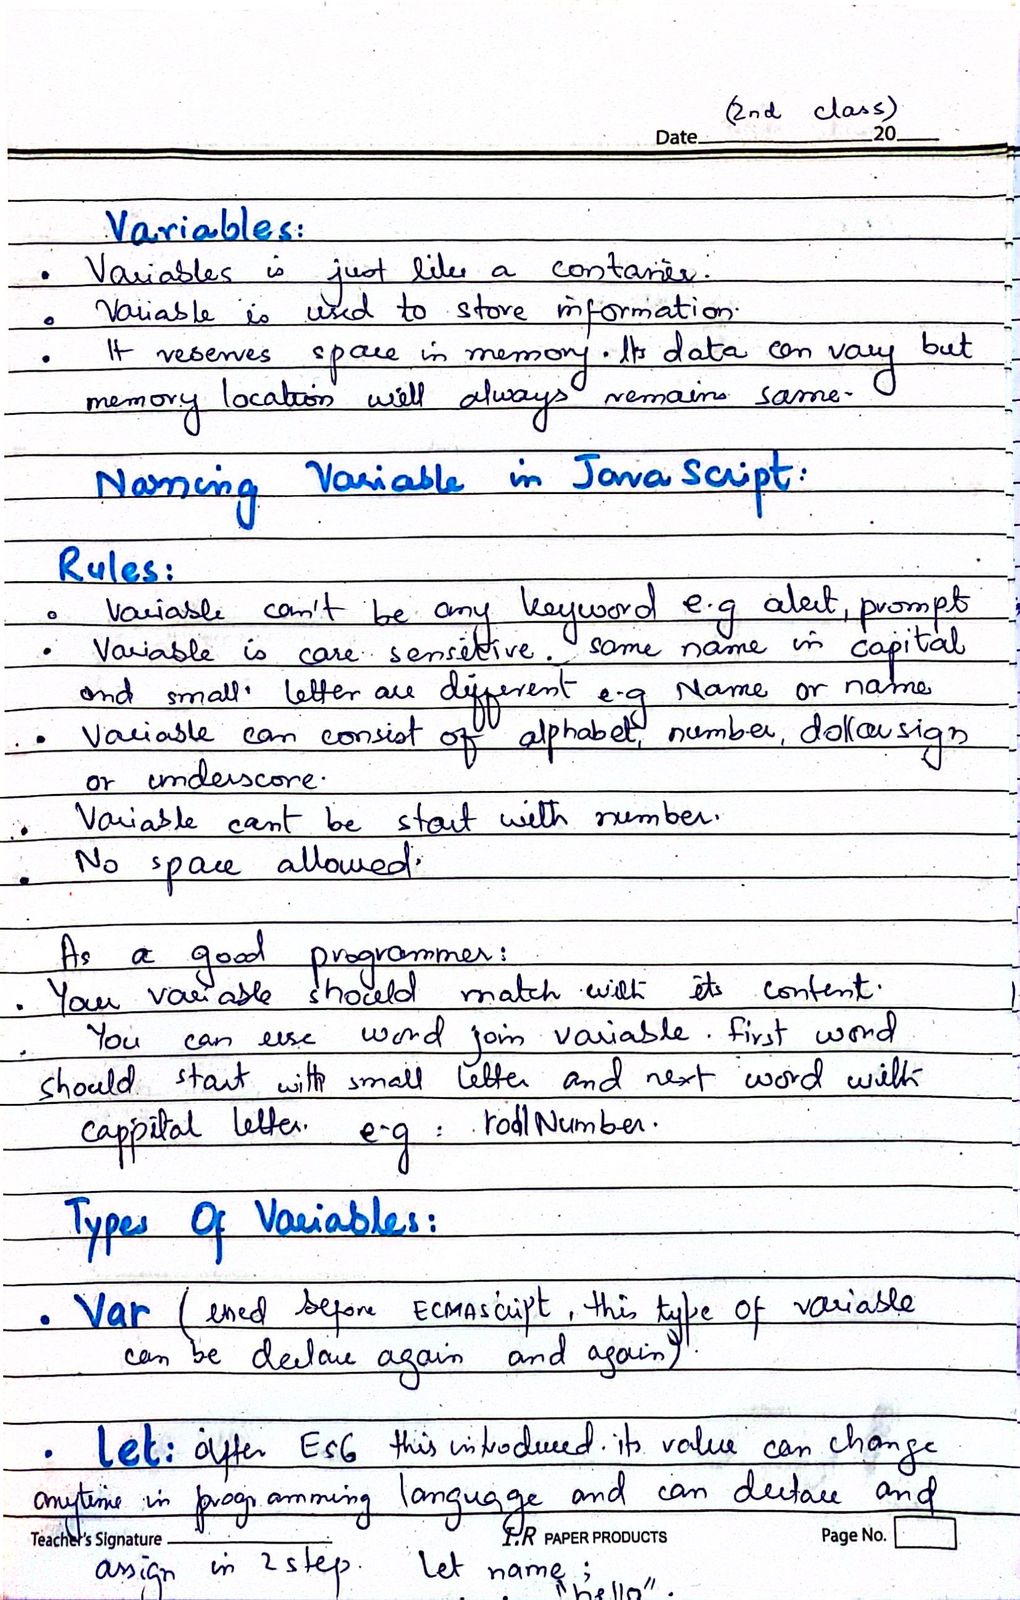 (2nd class)
Date 20
Variables:
• Variables is just like a contanier.
• Variable is used to store information.
• It reserves space in memory. Its data can vary but
memory location will always remains same.
Naming Variable in JavaScript:
Rules:
• Variable can't be any keyword e.g alert, prompt
• Variable is case sensetive. same name in capital
and small letter are different e.g Name or name
• Variable can consist of alphabet, number, dollar sign
or underscore.
• Variable cant be start with number.
• No space allowed.
As a good programmer:
• Your variable should match with its content.
• You can use word join variable. first word
should start with small letter and next word with
cappital letter. e.g : rollNumber.
Types Of Variables:
• Var (used before ECMAScript, this type of variable
can be declare again and again).
• let: after Es6 this introduced. its value can change
anytime in programming language and can declare and
Teacher's Signature I.R PAPER PRODUCTS Page No.
assign in 2 step. let name ;
"hello".